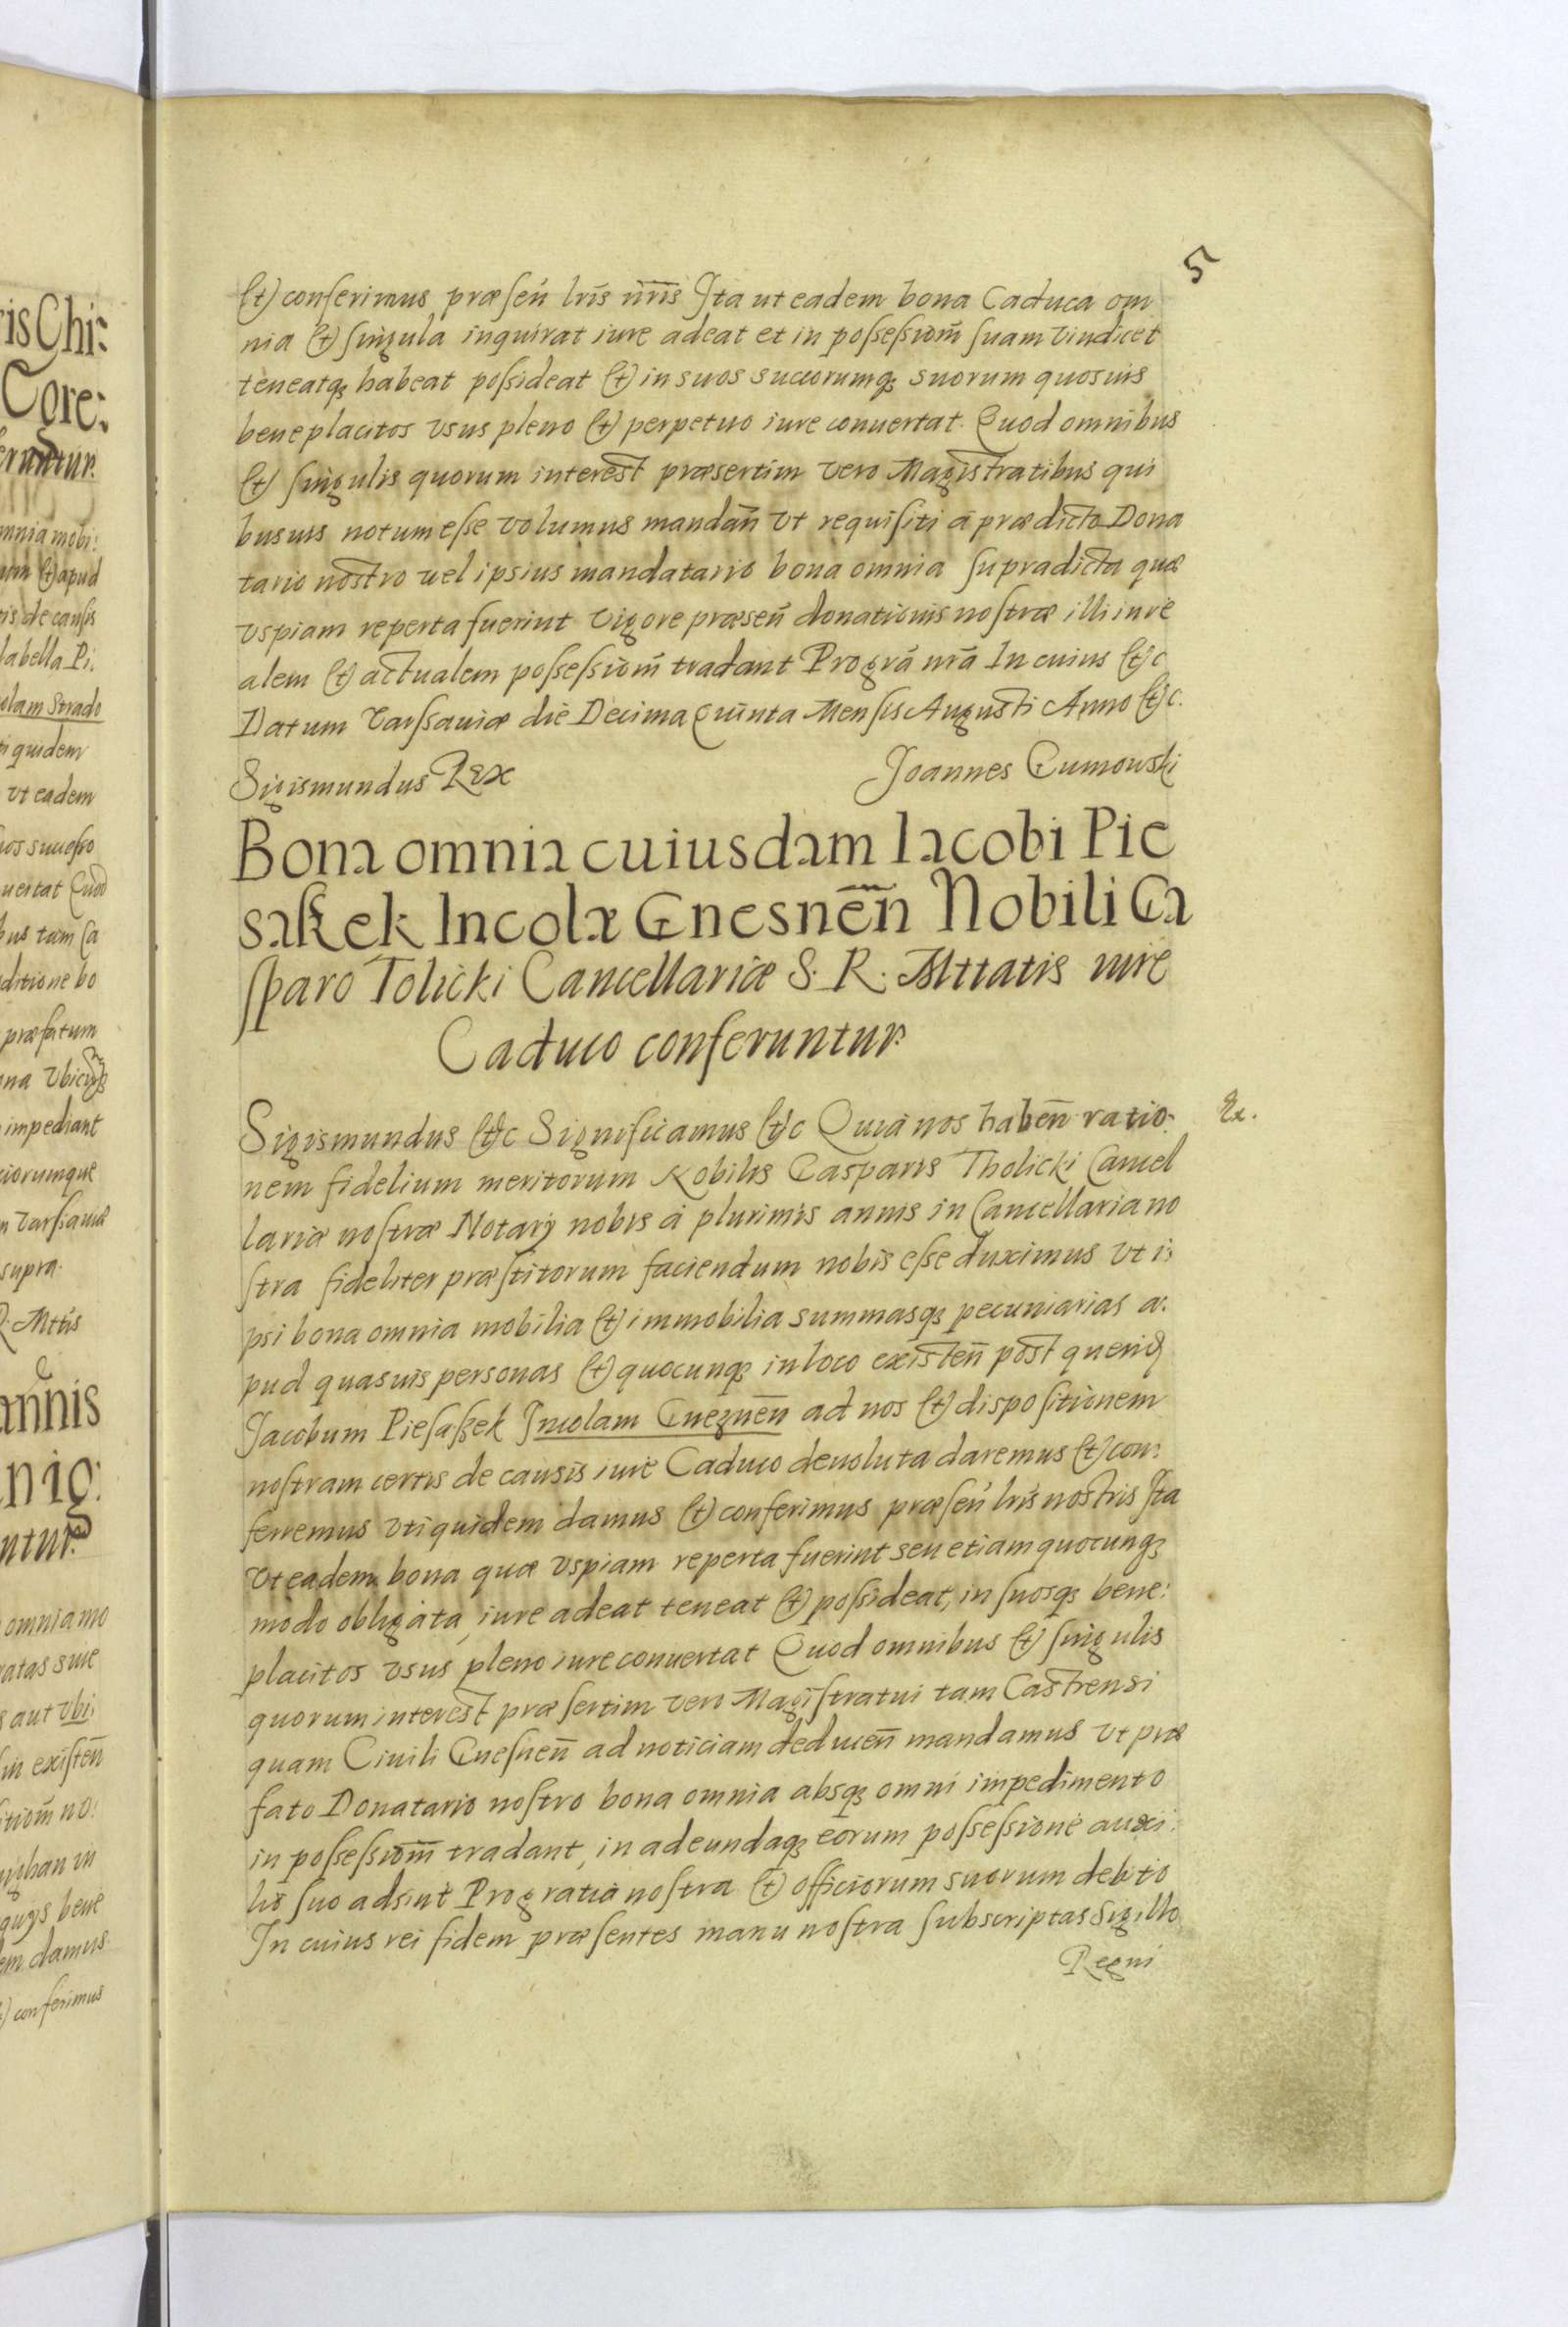 5
(et) conferimus præsen̄ lr̄is nr̄is Ita ut eadem bona Caduca om
nia (et) singula inquirat iure adeat et in possessiom̄ suam vindicet
teneatq₃ habeat possideat (et) in suos succorumq₃ suorum quosuis
beneplacitos vsus pleno (et) perpetuo iure conuertat. Quod omnibus
(et) singulis quorum interest præsertim vero Magistratibus qui
busuis notum esse volumus mandan̄ vt requisiti à prædicto Dona
tario nostro uel ipsius mandatario bona omnia supradicta quæ
vspiam reperta fuerint vigore præsen̄ donationis nostræ illi in re
alem (et) actualem possessiom̄ tradant Pro gr̄a nr̄a In cuius (et)c
Datum Varssauiæ die Decima Quinta Mensis Augusti Anno (et)c.
Sigismundus Rex Joannes Gumowski
Bona omnia cuiusdam Iacobi Pie
saßek Incolæ Gnesnen̄ Nobili Ga
sparo Tolicki Cancellariæ S. R. Mttatis iure
Caduco conferuntur.
Sigismundus (et)c Significamus (et)c Quia nos haben̄ ratio: Ex.
nem fidelium meritorum Nobilis Casparis Tholicki Cancel
lariæ nostræ Notarij nobis à plurimis annis in Cancellaria no
stra fideliter præstitorum faciendum nobis esse duximus vt i:
psi bona omnia mobilia (et) immobilia summasq₃ pecuniarias a:
pud quasuis personas (et) quocunq₃ in loco existen̄ post quend̄
Jacobum Piesaßek Incolam Gneznen̄ ad nos (et) dispositionem
nostram certis de causis iure Caduco deuoluta daremus (et) con:
ferremus vti quidem damus (et) conferimus præsen̄ lr̄is nostris Ita
vt eadem bona quæ vspiam reperta fuerint seu etiam quocunq₃
modo obligata, iure adeat teneat (et) possideat, in suosq₃ bene:
placitos vsus pleno iure conuertat Quod omnibus (et) singulis
quorum interest præsertim vero Magistratui tam Castrensi
quam Ciuili Gnesnen̄ ad noticiam deducen̄ mandamus vt præ
fato Donatario nostro bona omnia absq₃ omni impedimento
in possessiom̄ tradant, in adeundaq₃ eorum possessione auxi:
lio suo adsint Pro gratia nostra (et) officiorum suorum debito
In cuius rei fidem præsentes manu nostra subscriptas Sigillo
Regni